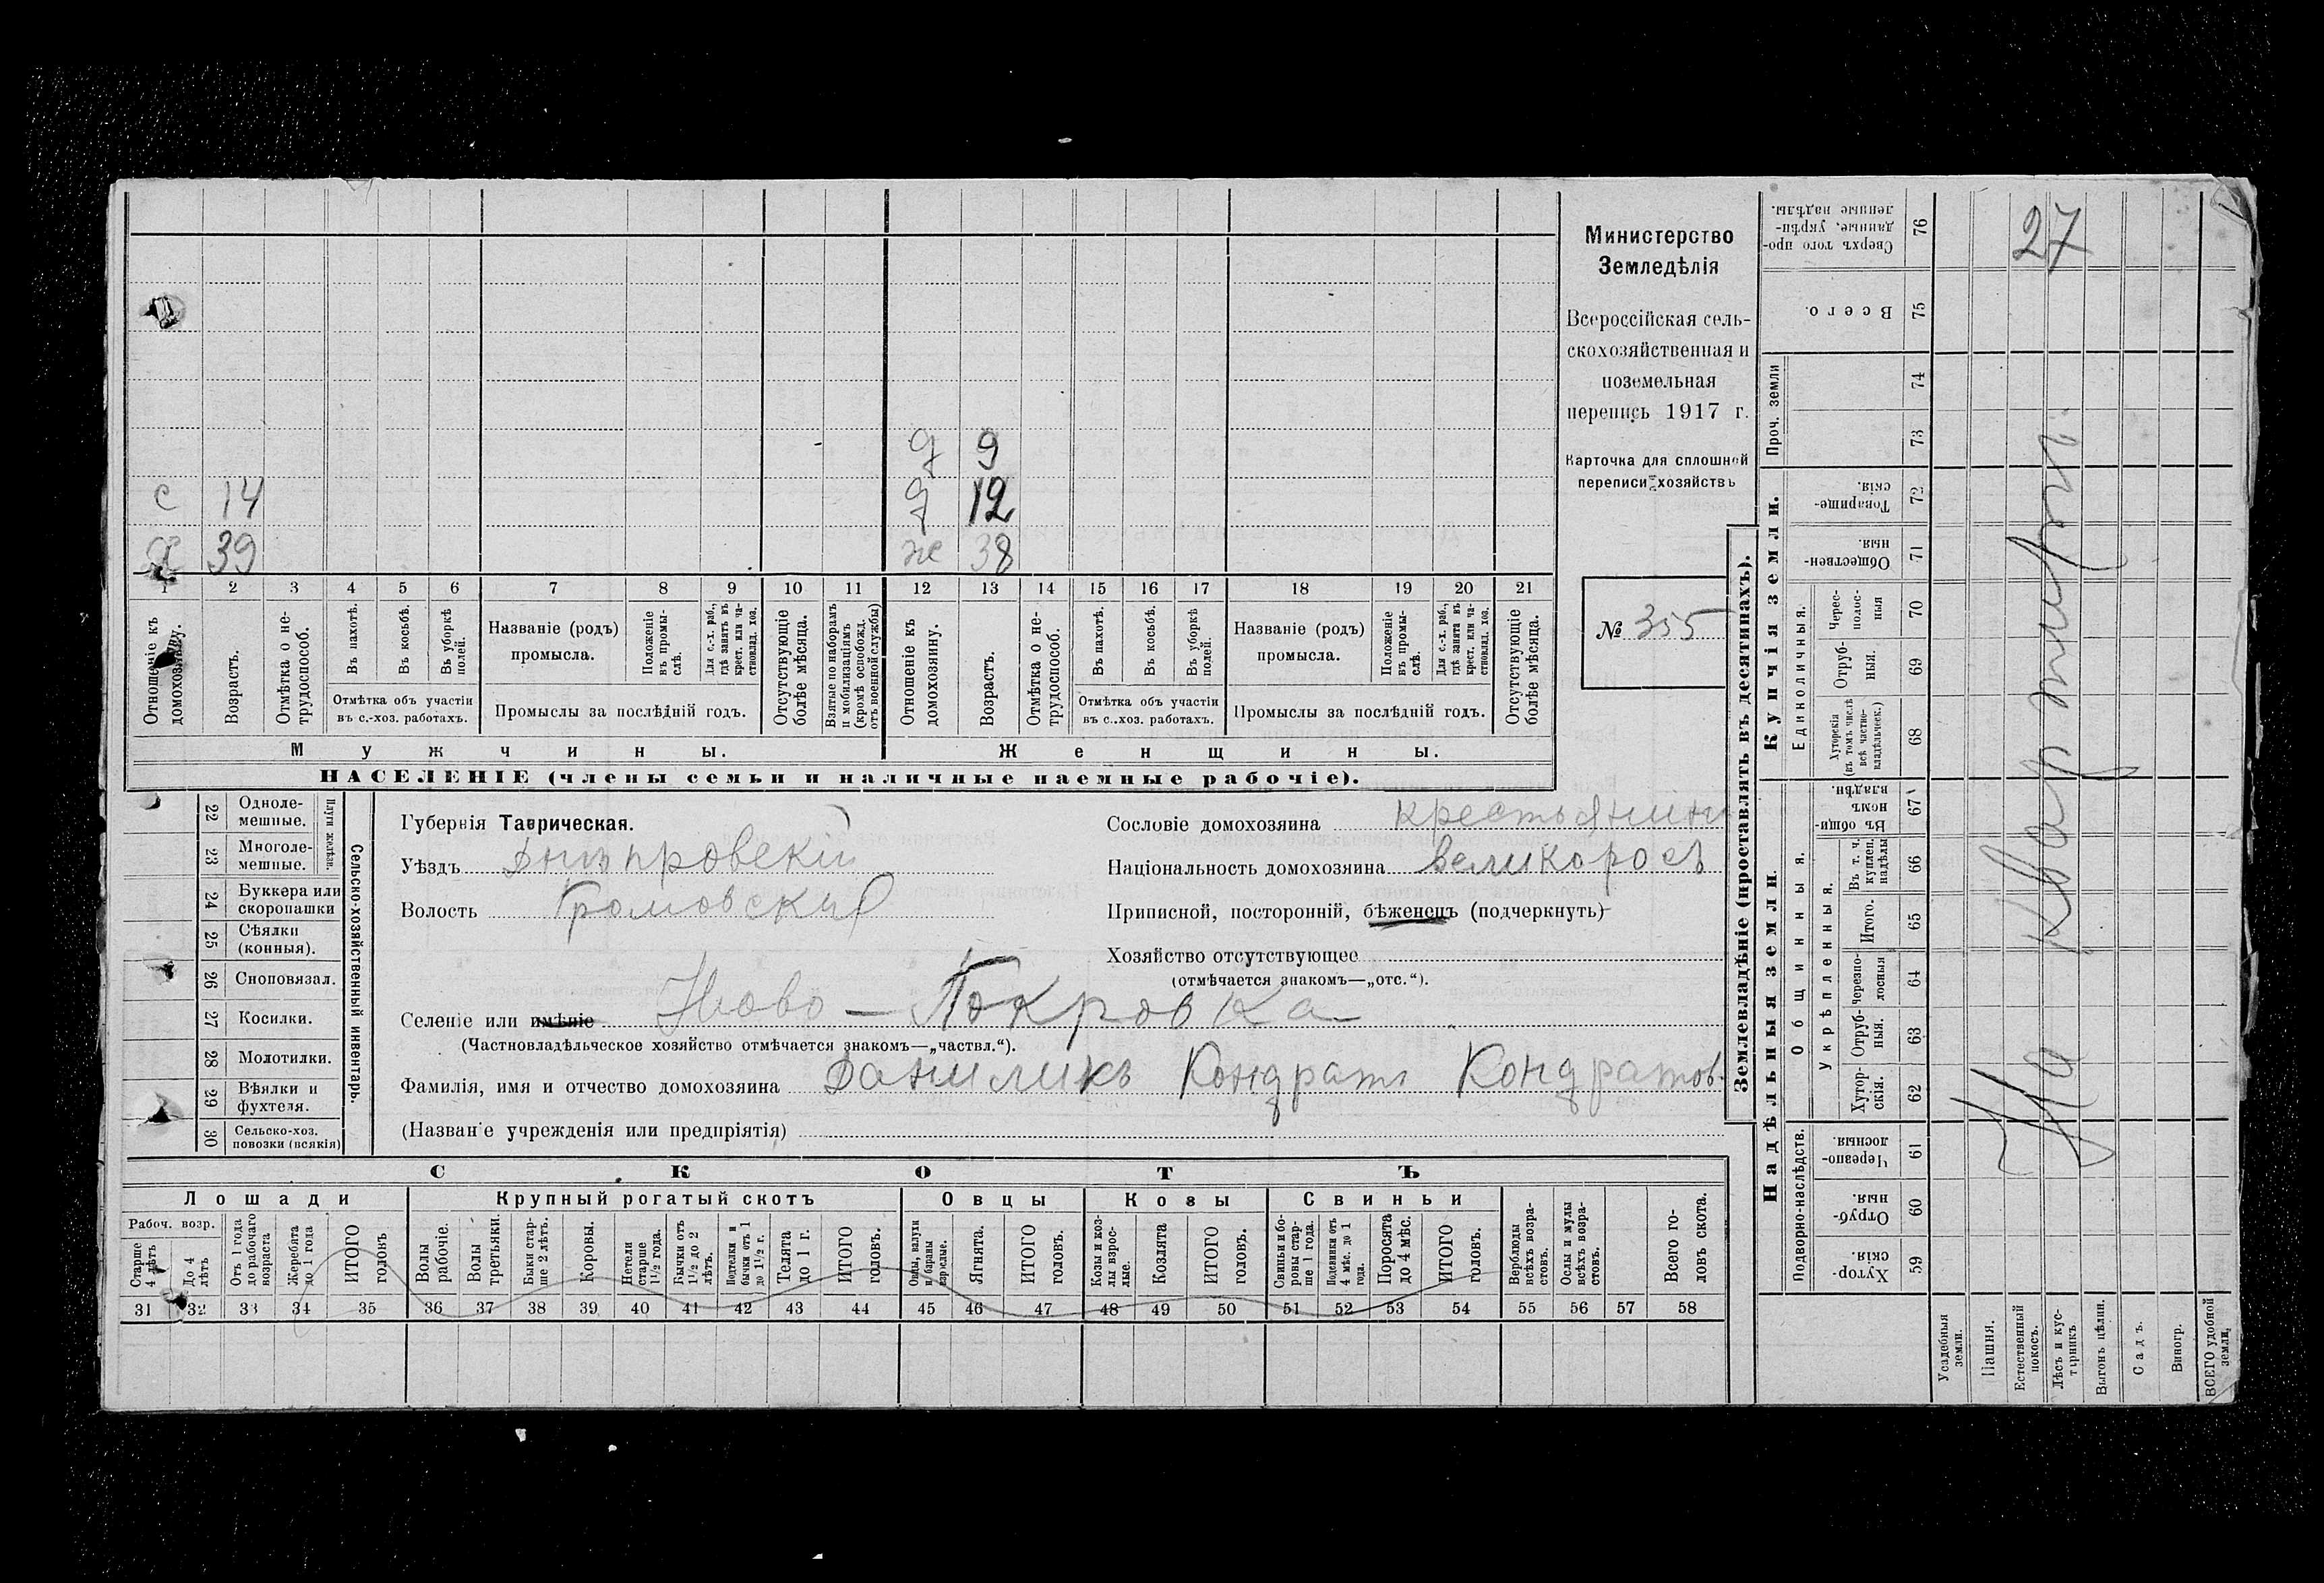 Министерство
Земледѣлія
Всероссійская сель-
скохозяйственная и
поземельная
перепись 1917 г.
Карточка для сплошной
переписи хозяйствъ
№ 355
д 9
с 14 д 12
х 39 ж 38
1 2 3 4 5 6 7 8 9 10 11 12 13 14 15 16 17 18 19 20 21
Отношеніе къ домохозяину.
Возрастъ.
Отмѣтка о не-трудоспособ.
Въ пахотѣ.
Въ косьбѣ.
Въ уборкѣ полей.
Отмѣтка объ участіи
въ с.-хоз. работахъ.
Названіе (родъ)
промысла.
Положеніе въ промы-слѣ.
Для с.-х. раб., гдѣ занятъ въ крест. или ча-стновлад. хоз.
Промыслы за послѣдній годъ.
Отсутствующіе болѣе мѣсяца.
Взятые по наборамъ и мобилизаціямъ (кромѣ освобожд. отъ военной службы)
Отношеніе къ домохозяину.
Возрастъ.
Отмѣтка о не-трудоспособ.
Въ пахотѣ.
Въ косьбѣ.
Въ уборкѣ полей.
Отмѣтка объ участіи
въ с.-хоз. работахъ.
Названіе (родъ)
промысла.
Положеніе въ промы-слѣ.
Для с.-х. раб., гдѣ занята въ крест. или ча-стновлад. хоз.
Промыслы за послѣдній годъ.
Отсутствующіе болѣе мѣсяца.
Мужчины.
Женщины.
НАСЕЛЕНІЕ (члены семьи и наличные наемные рабочіе).
22 Одноле-мешные.
23 Многоле-мешные.
Плуги желѣзн.
24 Буккера или скоропашки
25 Сѣялки (конныя).
26 Сноповязал.
27 Косилки.
28 Молотилки.
29 Вѣялки и фухтеля.
30 Сельско-хоз. повозки (всякія)
Сельско-хозяйственный инвентарь.
Губернія Таврическая.
Уѣздъ Днѣпровскій
Волость Громовская
Сословіе домохозяина крестьянинъ
Національность домохозяина великоросъ
Приписной, посторонній, бѣженецъ (подчеркнуть)
Хозяйство отсутствующее
(отмѣчается знакомъ—„отс.“).
Селеніе или имѣніе Ново-Покровка
(Частновладѣльческое хозяйство отмѣчается знакомъ—„частвл.“).
Фамилія, имя и отчество домохозяина Данилюкъ Кондратъ Кондратов.
(Названіе учрежденія или предпріятія)
СКОТЪ
Лошади
Крупный рогатый скотъ
Овцы
Козы
Свиньи
Рабоч. возр.
Старше 4 лѣтъ
До 4 лѣтъ
Отъ 1 года до рабочаго возраста
Жеребята до 1 года
ИТОГО головъ
Волы рабочіе.
Волы третьяки.
Быки стар-ше 2 лѣтъ.
Коровы.
Нетели старше 1½ года.
Бычки отъ 1½ до 2 лѣтъ.
Подтелки и бычки отъ 1 до 1½ г.
Телята до 1 г.
ИТОГО головъ.
Овцы, валухи и бараны взрослые.
Ягнята.
ИТОГО головъ.
Козы и коз-лы взрос-лые.
Козлята
ИТОГО головъ.
Свиньи и бо-ровы стар-ше 1 года.
Подсвинки отъ 4 мѣс. до 1 года.
Поросята до 4 мѣс.
ИТОГО головъ.
Верблюды всѣхъ возра-стовъ.
Ослы и мулы всѣхъ возра-стовъ.
Всего го-ловъ скота.
31 32 33 34 35 36 37 38 39 40 41 42 43 44 45 46 47 48 49 50 51 52 53 54 55 56 57 58
Землевладѣніе (проставлять въ десятинахъ).
Надѣльныя земли.
Купчія земли.
Проч. земли
Подворно-наслѣдств.
Общинныя.
Укрѣпленныя.
Единоличныя.
Хутор-скія. 59
Отруб-ныя. 60
Черезпо-лосныя 61
Хутор-скія. 62
Отруб-ныя. 63
Черезпо-лосныя 64
Итого. 65
Въ т. ч. куплен. надѣлы 66
Въ общин-номъ владѣн. 67
Хуторскія (въ томъ числѣ всѣ частно-владѣльческ.) 68
Отруб-ныя. 69
Черес-полос-ныя 70
Обществен-ныя 71
Товарище-скія. 72
73
74
Всего. 75
Сверхъ того про-данные, укрѣп-ленные надѣлы. 76
Усадебныя земли.
Пашня.
Естественный покосъ.
Лѣсъ и кус-тарникъ
Выгонъ цѣлин.
Садъ.
Виногр.
ВСЕГО удобной земли.
На квартирѣ.
27